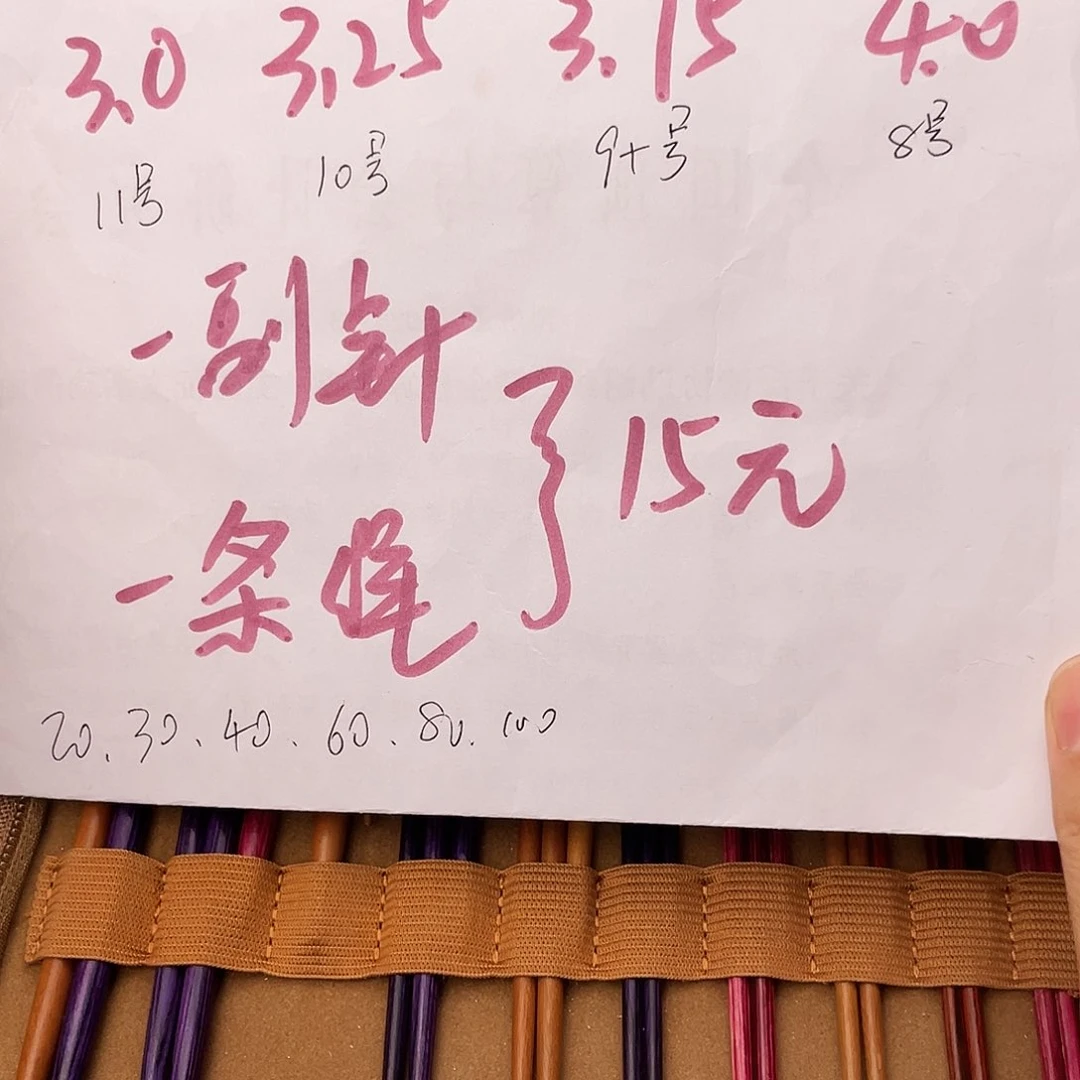 3.0 3.25 3.15 4.0
11号 10号 9+号 8号
一副针
15元
一条绳
20、30、40、60、80、100